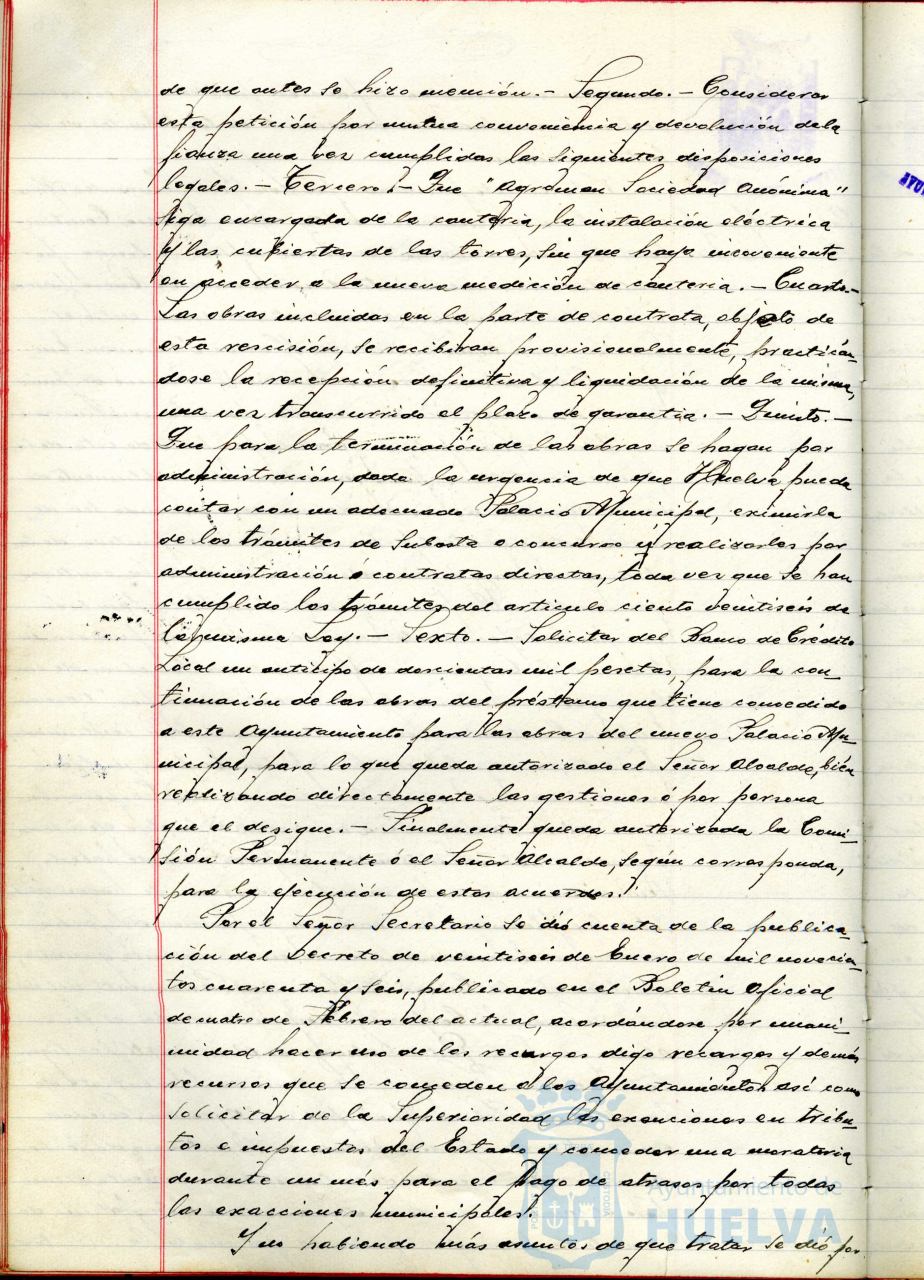 de que antes se hizo mención.- Segundo.- Considerar
esta petición por mutua conveniencia y devolución dela
fianza una vez cumplidas las siguientes disposiciones
legales.- Tercero.- Que "Agroman Sociedad Anónima"
siga encargada de la cantería, la instalación eléctrica
y las cubiertas de las torres, sin que haya incoveniente
en acceder a la nueva medición de cantería.- Cuarto.-
Las obras incluidas en la parte de contrata, objeto de
esta rescisión, se recibiran provisionalmente, practicán-
dose la recepción definitiva y liquidación de la misma,
una vez transcurrido el plazo de garantia.- Quinto.-
Que para la terminación de las obras se hagan por
administración, dada la urgencia de que Huelva pueda
contar con un adecuado Palacio Municipal, eximirla
de los trámites de Subasta o concurso y realizarlas por
administración ó contratas directas, toda vez que se han
cumplido los trámites del articulo ciento veintiseis de
la misma Ley.- Sexto.- Solicitar del Banco de Crédito
Local un anticipo de doscientas mil pesetas, para la con-
tinuación de las obras del préstamo que tiene concedido
a este Ayuntamiento para las obras del nuevo Palacio Mu-
nicipal, para lo que queda autorizado el Señor Alcalde, bien
realizando directamente las gestiones ó por persona
que el designe.- Finalmente queda autorizada la Comi-
sión Permanente ó el Señor Alcalde, según corresponda,
para la ejecución de estos acuerdos.
Por el Señor Secretario se dió cuenta de la publica-
ción del Decreto de veintiseis de Enero de mil novecien-
tos cuarenta y seis, publicado en el Boletin Oficial
de cuatro de Febrero del actual, acordándose por unani-
midad hacer uso de los recargos digo recargos y demás
recursos que se conceden a los Ayuntamientos así como
solicitar de la Superioridad las exenciones en tribu-
tos e impuestos del Estado y conceder una moratoria
durante un més para el pago de atrasos por todas
las exacciones municipales.
Y no habiendo más asuntos de que tratar se dió por
Ayuntamiento de
HUELVA